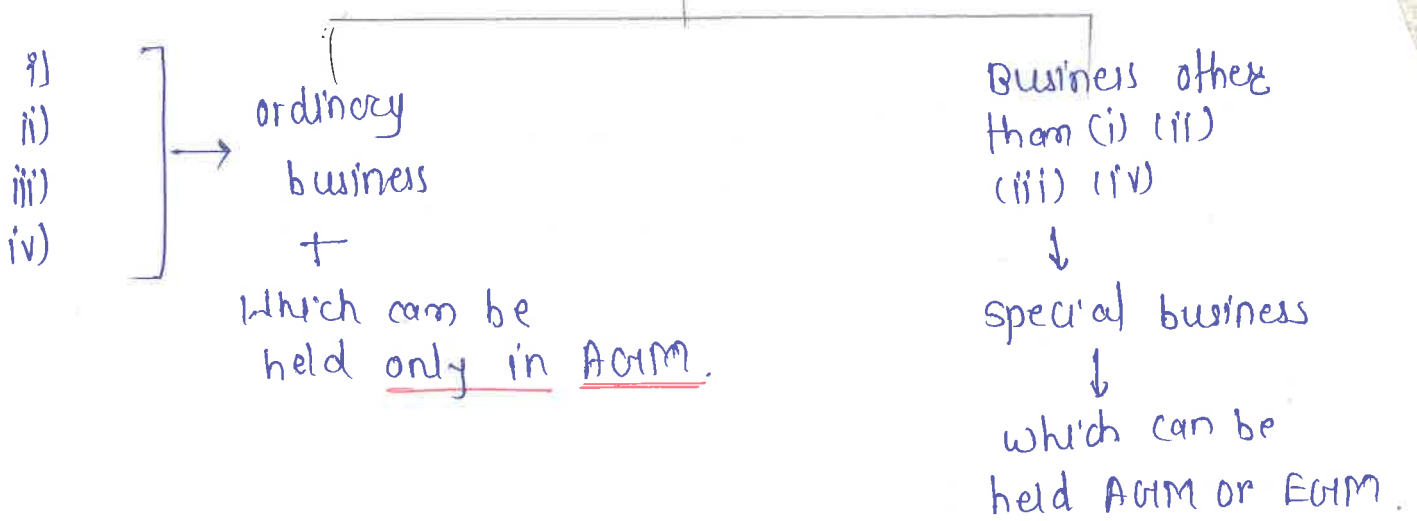 i)
ii)
iii)
iv)
ordinary
business
+
Which can be
held only in AGM.
Business other
than (i) (ii)
(iii) (iv)
↓
special business
↓
which can be
held AGM or EGM.